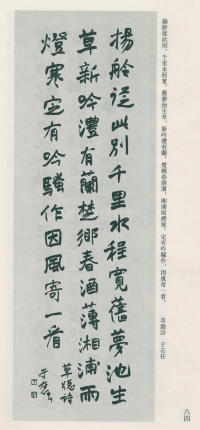 揚舲從此別千里水程寬舊夢池生
草新吟澧有蘭楚鄉春酒薄湘浦雨
燈寒定有吟騷作因風寄一看
草窗詩
于右任
揚舲從此別,千里水程寬,舊夢池生草,新吟澧有蘭,楚鄉春酒薄,湘浦雨燈寒,定有吟騷作,因風寄一看。
草窗詩 于右任
六四